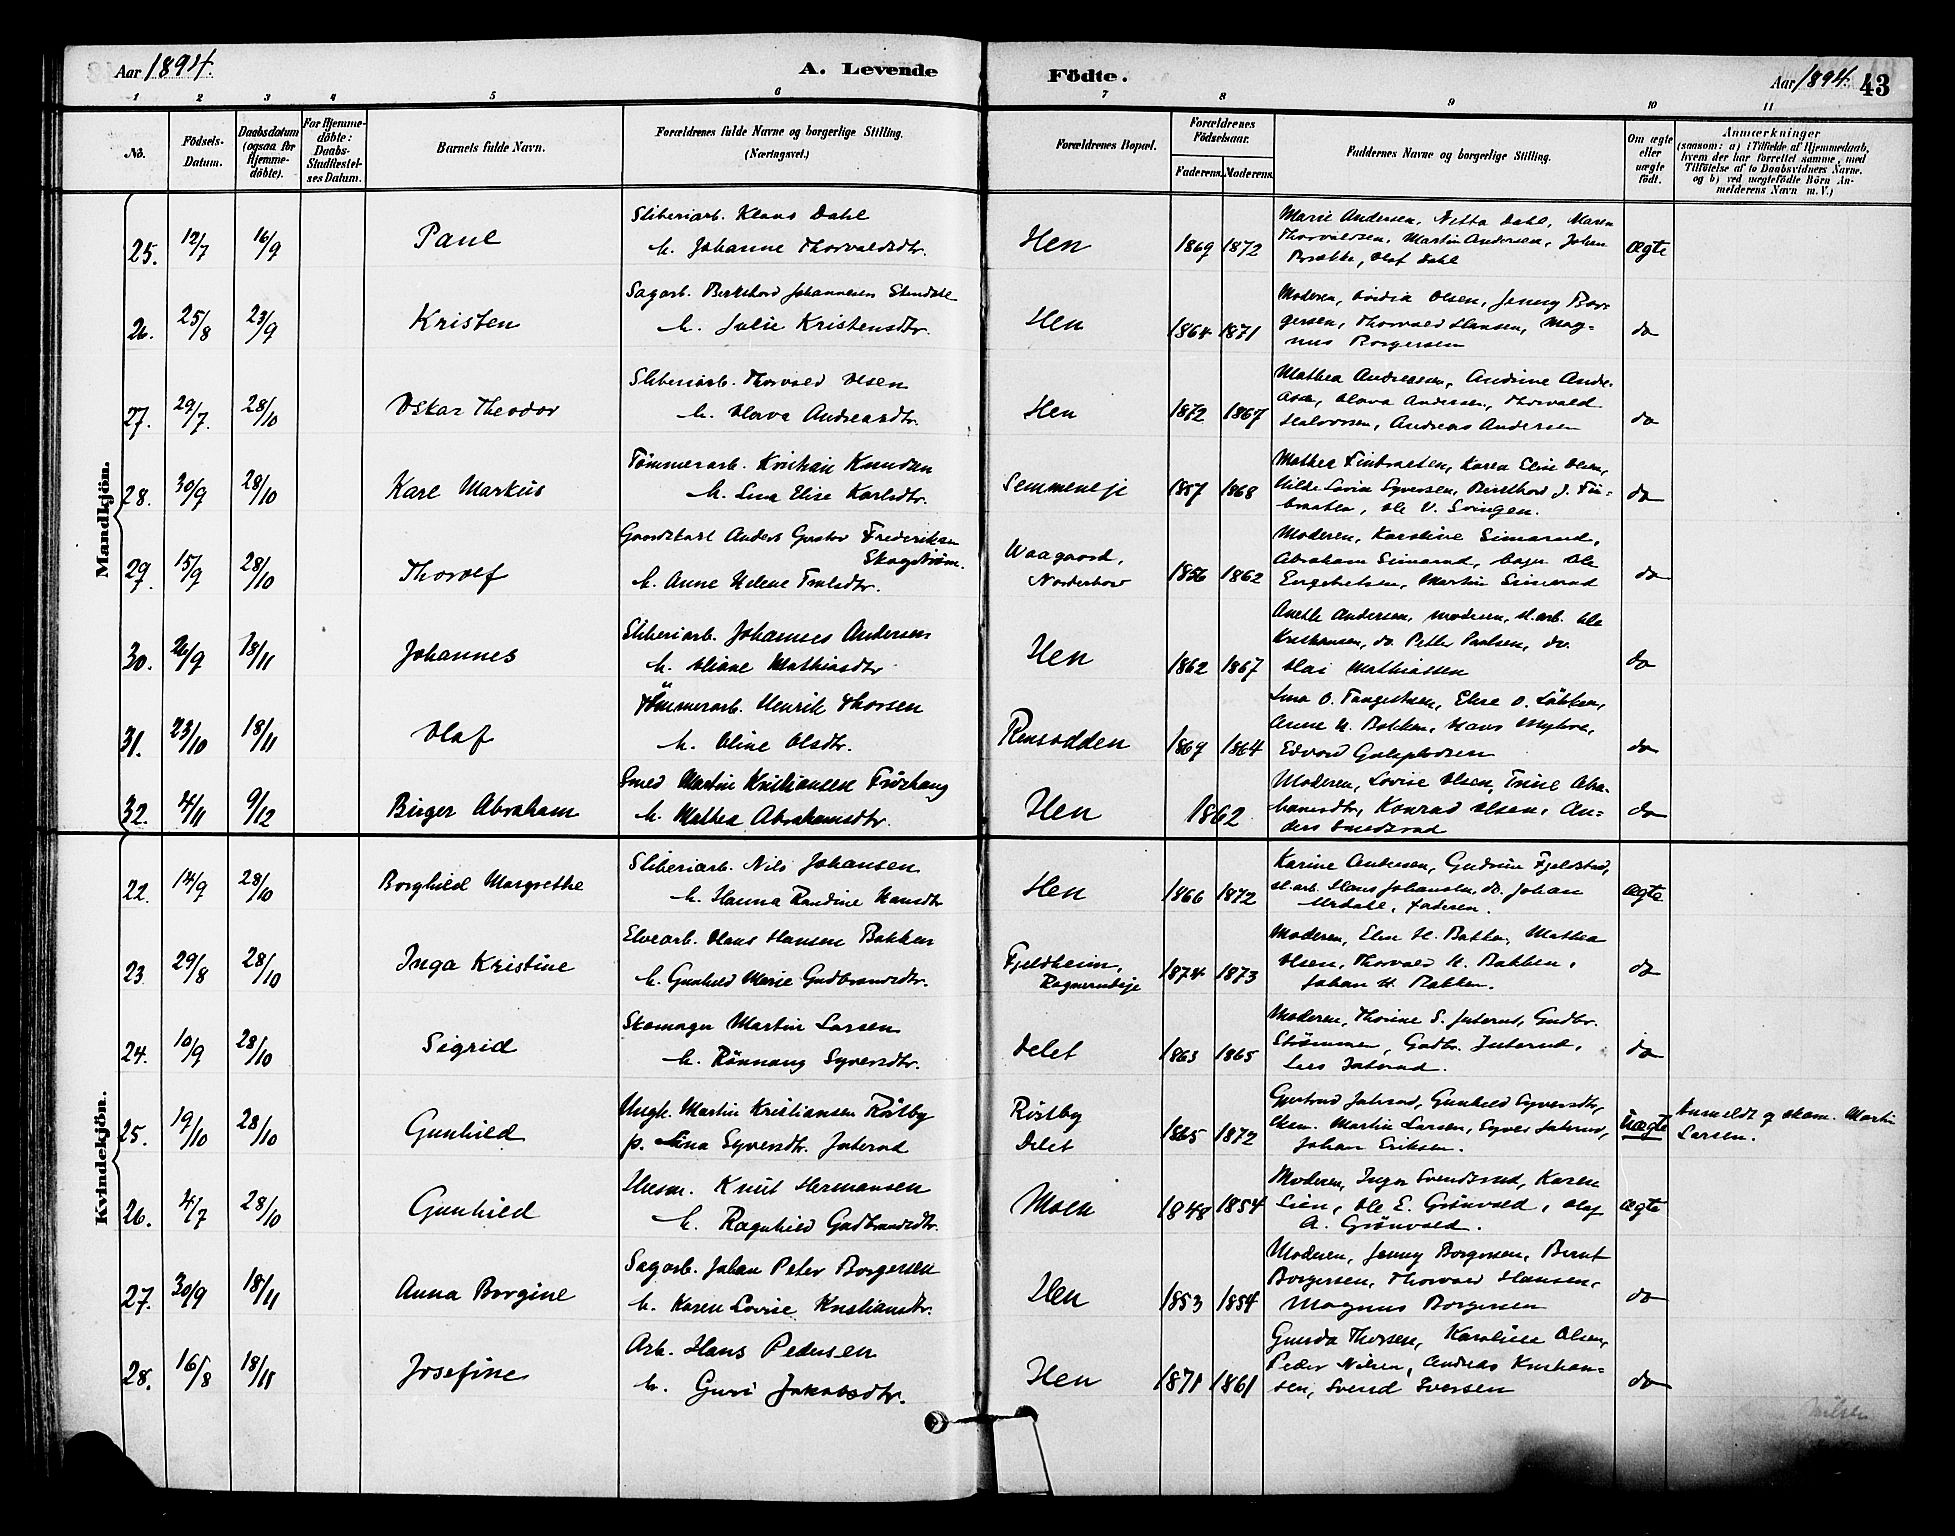 Aar 1894.
A. Levende Födte.
Aar 1894.
43
1 2 3 4 5 6 7 8 9 10 11
No.
Födsels-Datum.
Daabsdatum (ogsaa for Hjemme-döbte).
For Hjemme-döbte: Daabs-Stadfæstel-ses Datum.
Barnets fulde Navn.
Forældrenes fulde Navne og borgerlige Stilling. (Næringsvei.)
Forældrenes Bopæl.
Forældrenes Födselsaar.
Faderens. Moderens.
Faddernes Navne og borgerlige Stilling.
Om ægte eller uægte födt.
Anmærkninger
(saasom: a) i Tilfælde af Hjemmedaab, hvem der har forrettet samme, med Tilföielse af to Daabsvidners Navne. og b) ved uægtefödte Börn An-melderens Navn m. V.)
Mandkjön.
25. 12/7 16/9 Paul Sliberiarb. Klaus Dahl
h. Johanne Thorvaldsdtr. Hen 1869 1872 Marie Andersen, Netta Dahl, Maren
Thorvaldsen, Martin Andersen, Johan
Olaf Dahl ægte
26. 25/8 23/9 Kristen Sagarb. Johannesen
h. Julie Kristensdtr. Hen 1864 1871 Moderen, Olsen, Jenny Bor-
gersen, Thorvald Hansen, Mag-
nus Borgersen do
27. 29/7. 28/10 Oskar Theodor Sliberiarb. Thorvald Olsen
h. Olava Andreasdtr. Hen 1872 1867 Mathea Andreasen, Andrine Andre-
asen, Olava Andersen, Thorvald
Halvorsen, Andreas Andersen do
28. 30/9 28/10 Karl Markus Tömmerarb. Kristian Knudsen
h. Lina Elise Karlsdtr. Semmeneje 1857 1868 Mathea Finbraaten, Karen Elise Olsen,
Syversen, J. Fin-
braaten, Ole V. Svingen. do
29. 15/9 28/10 Thorolf Gaardskarl Anders Gustav Frederiksen
Skogström.
h. Anne Helene Waagaard,
Norderhov 1856 1862 Moderen, Karoline Simarud,
Abraham Simarud, bager Ole
Engebretsen, Martin Simarud do
30. 26/9 18/11 Johannes Sliberiarb. Johannes Andersen
h. Oliane Mathiasdtr. Hen 1862 1867 Anethe Andersen, moderen, sl.arb. Ole
Kristiansen, do. Petter Paulsen, do.
Olai Mathiassen do
31. 23/10 18/11 Olaf Tömmerarb. Henrik Thorsen
h. Oline Olsdtr. Rensodden 1869 1864 Lina O. Elise O. Løkken,
Anne H. Bakken, Hans Myhre,
Edvard do
32. 4/11 9/12 Birger Abraham Smed Martin Kristiansen
h. Mathea Abrahamsdtr. Hen 1862 Moderen, Lovise Olsen, Trine Abra-
hamsdtr, Konrad Olsen, An-
ders do
Kvindekjön.
22. 14/9 28/10 Borghild Margrethe Sliberiarb. Nils Johansen
h. Hanna Randine Hansdtr Hen 1866 1872 Karine Andersen, Gudrun Fjeldstad,
sl.arb. Hans Johansen, do. Johan
Urdahl, faderen. ægte
23 29/8 28/10 Inga Kristine Elvearb. Hans Hansen Bakken
h. Gunhild Marie Gudbrandsdtr. Fjeldheim,
1874 1873 Moderen, Elen H. Bakken, Mathea
Olsen, Thorvald H. Bakken,
Johan H. Bakken. do
24. 10/9 28/10 Sigrid Skomager Martin Larsen
h. Rönnaug Syversdtr. Delet 1863 1865 Moderen, Thorine S. Jaterud, Gudbr.
Strömmen, Gudbr. Jaterud,
Lars Jaterud. do
25. 19/10 28/10 Gunhild Ungk. Martin Kristiansen Röstby
p. Lina Syversdtr. Jaterud Röstby
Delet 1865 1872 Gjertrud Jaterud, Gunhild Syversdtr,
skom. Martin Larsen, Syver Jaterud,
Johan Eriksen. uægte Anmeldt af skom. Martin
Larsen.
26. 4/7 28/10 Gunhild Husm. Knut Hermansen
h. Ragnhild Gudbrandsdtr. Moen 1848 1854 Moderen, Inger Svendsrud, Karen
Lien, Ole E. Grönvold, Olaf
A. Grönvold. ægte
27. 30/9 18/11 Anna Borgine Sagarb. Johan Peter Borgersen
h. Karen Lovise Kristiansdtr. Hen 1853 1854 Moderen, Jenny Borgersen, Bernt
Borgersen, Thorvald Hansen,
Magnus Borgersen do
28. 16/8 18/11 Josefine Arb. Hans Pedersen
h. Guri Jakobsdtr. Hen 1871 1861 Gunda Thorsen, Karoline Olsen,
Peder Nilsen, Andreas Kristian-
sen, Svend Iversen do